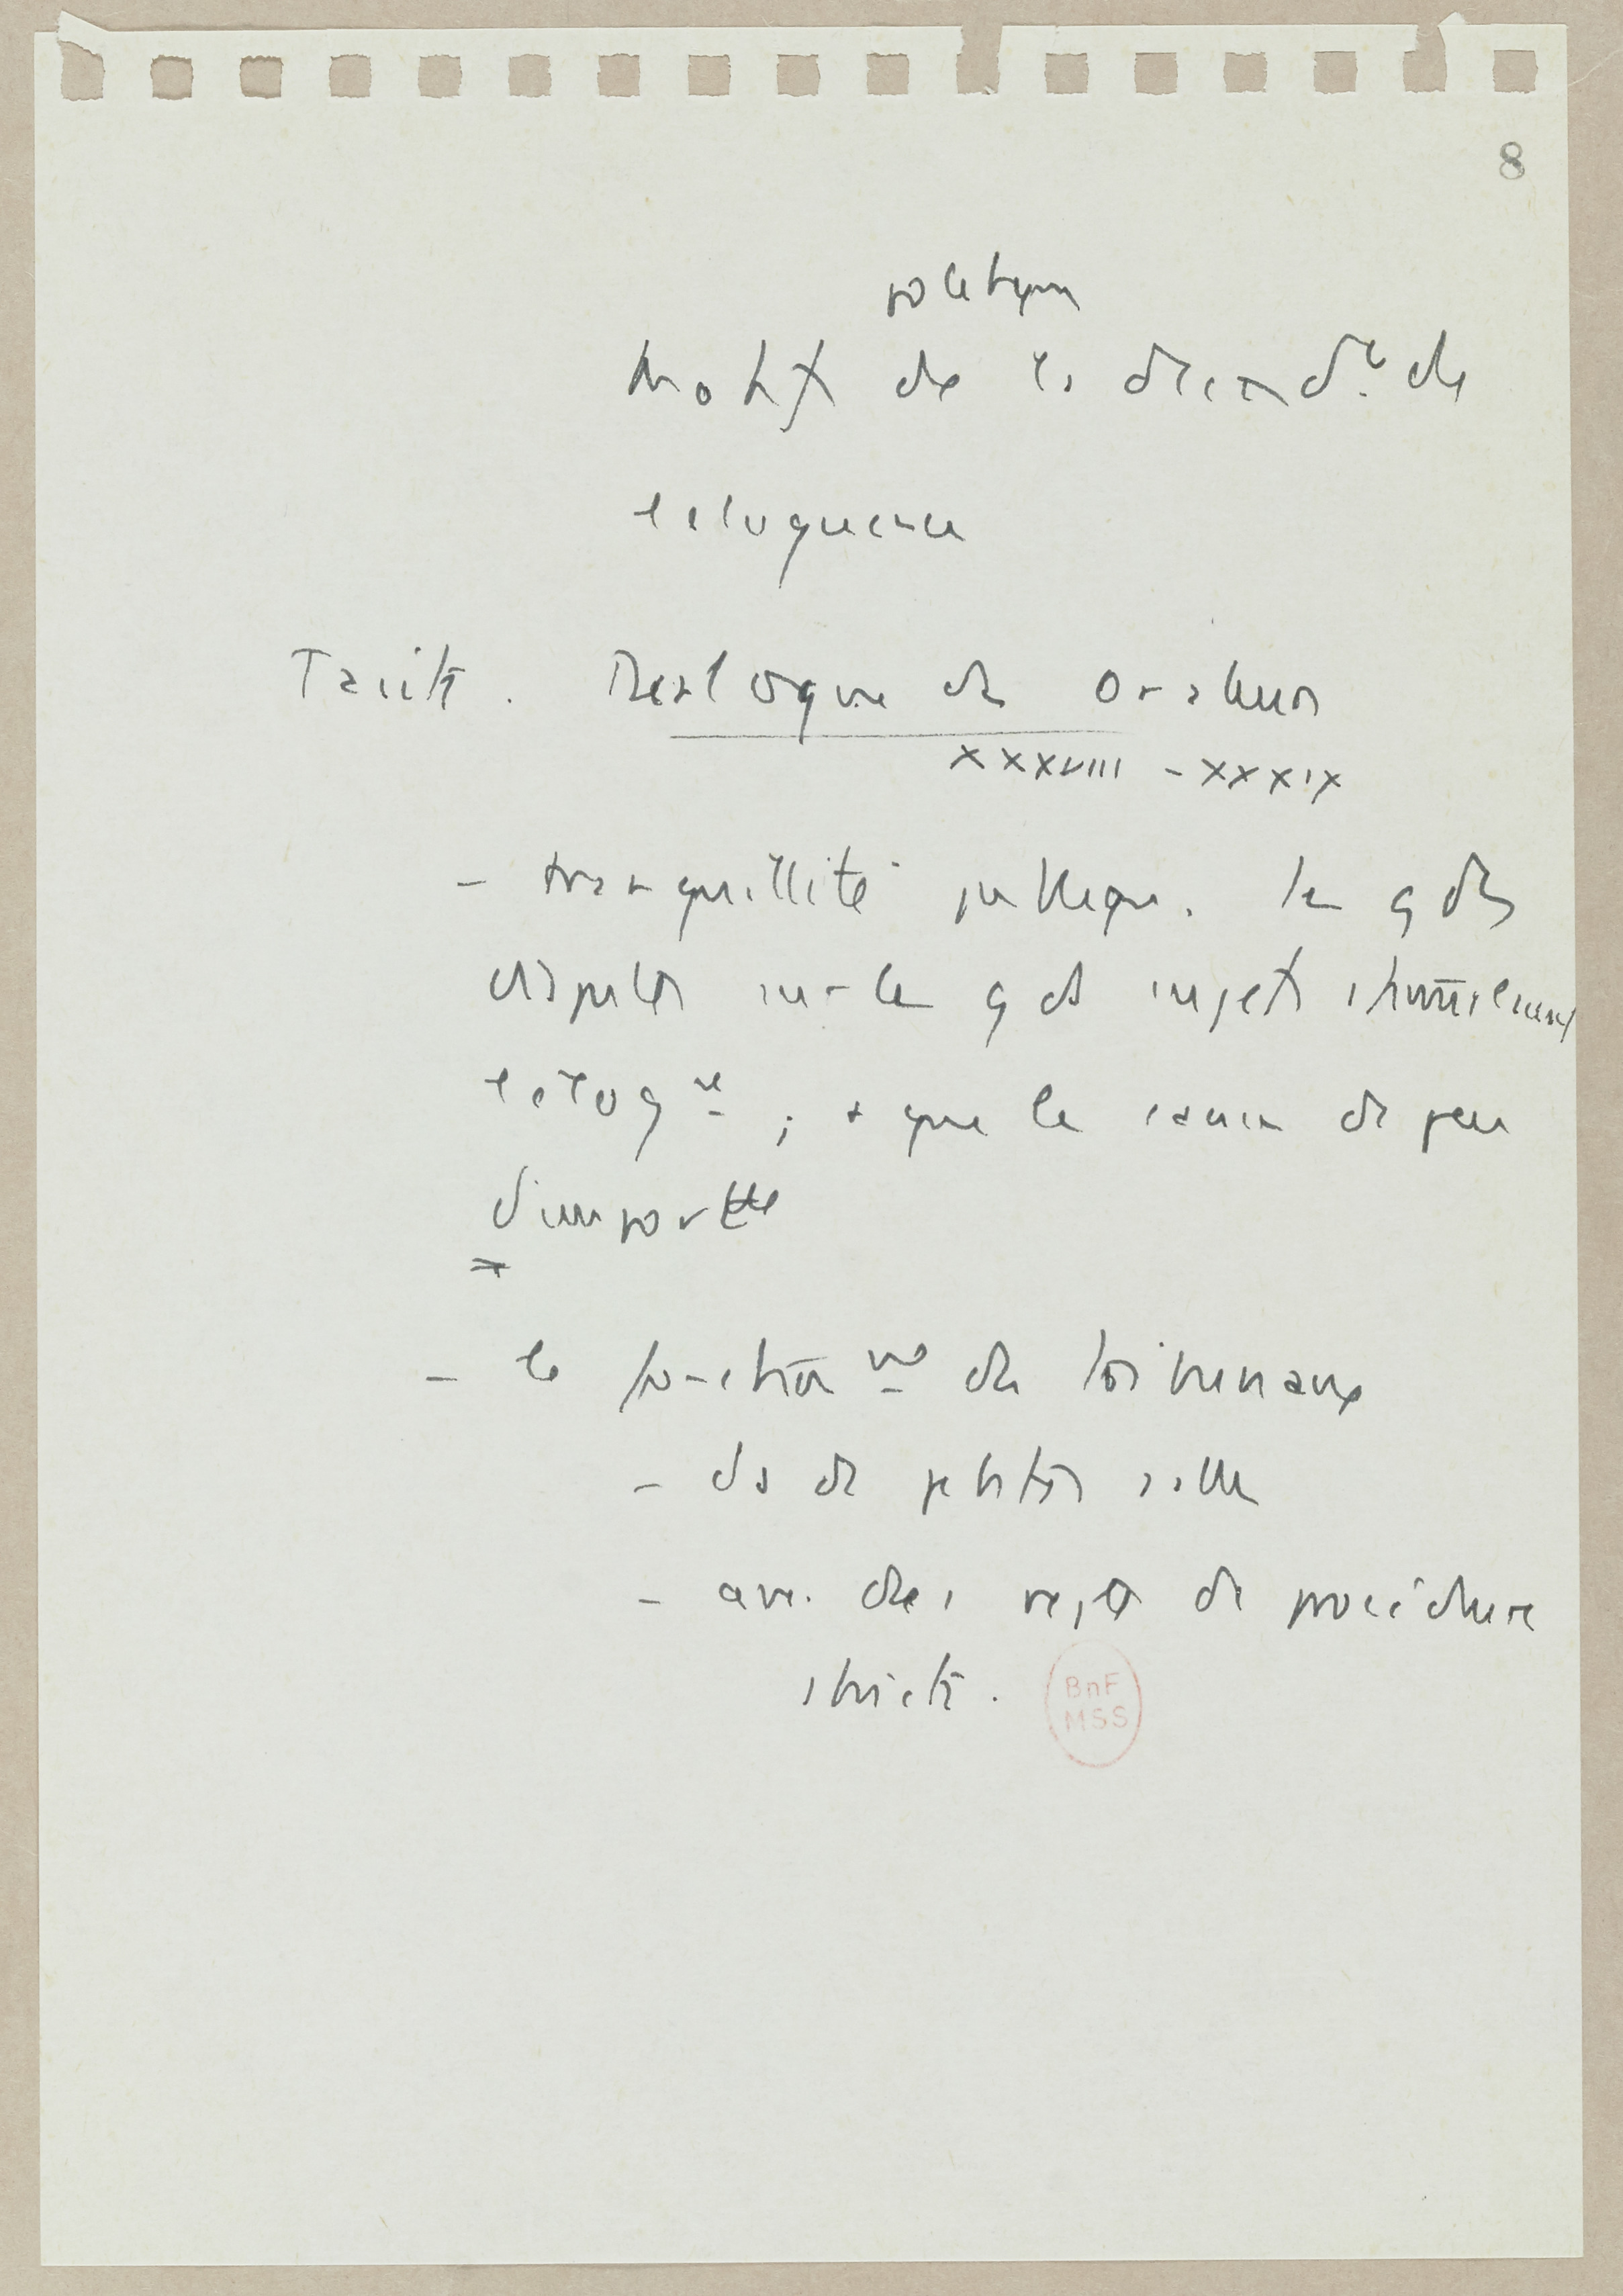 8
politique
Motifs de la décad.ce de
l'eloquence
Tacite. Dialogue des Orateurs
XXXVIII - XXXIX
- tranquillité publique. les gdes
disputes sur les gds sujets stimulaient
l'eloqce ; + que les causes de peu
d'importce
- le fonctionnt des tribunaux
- ds de petites salles
- avec des regles de procédure
stricte.
BnF
MSS